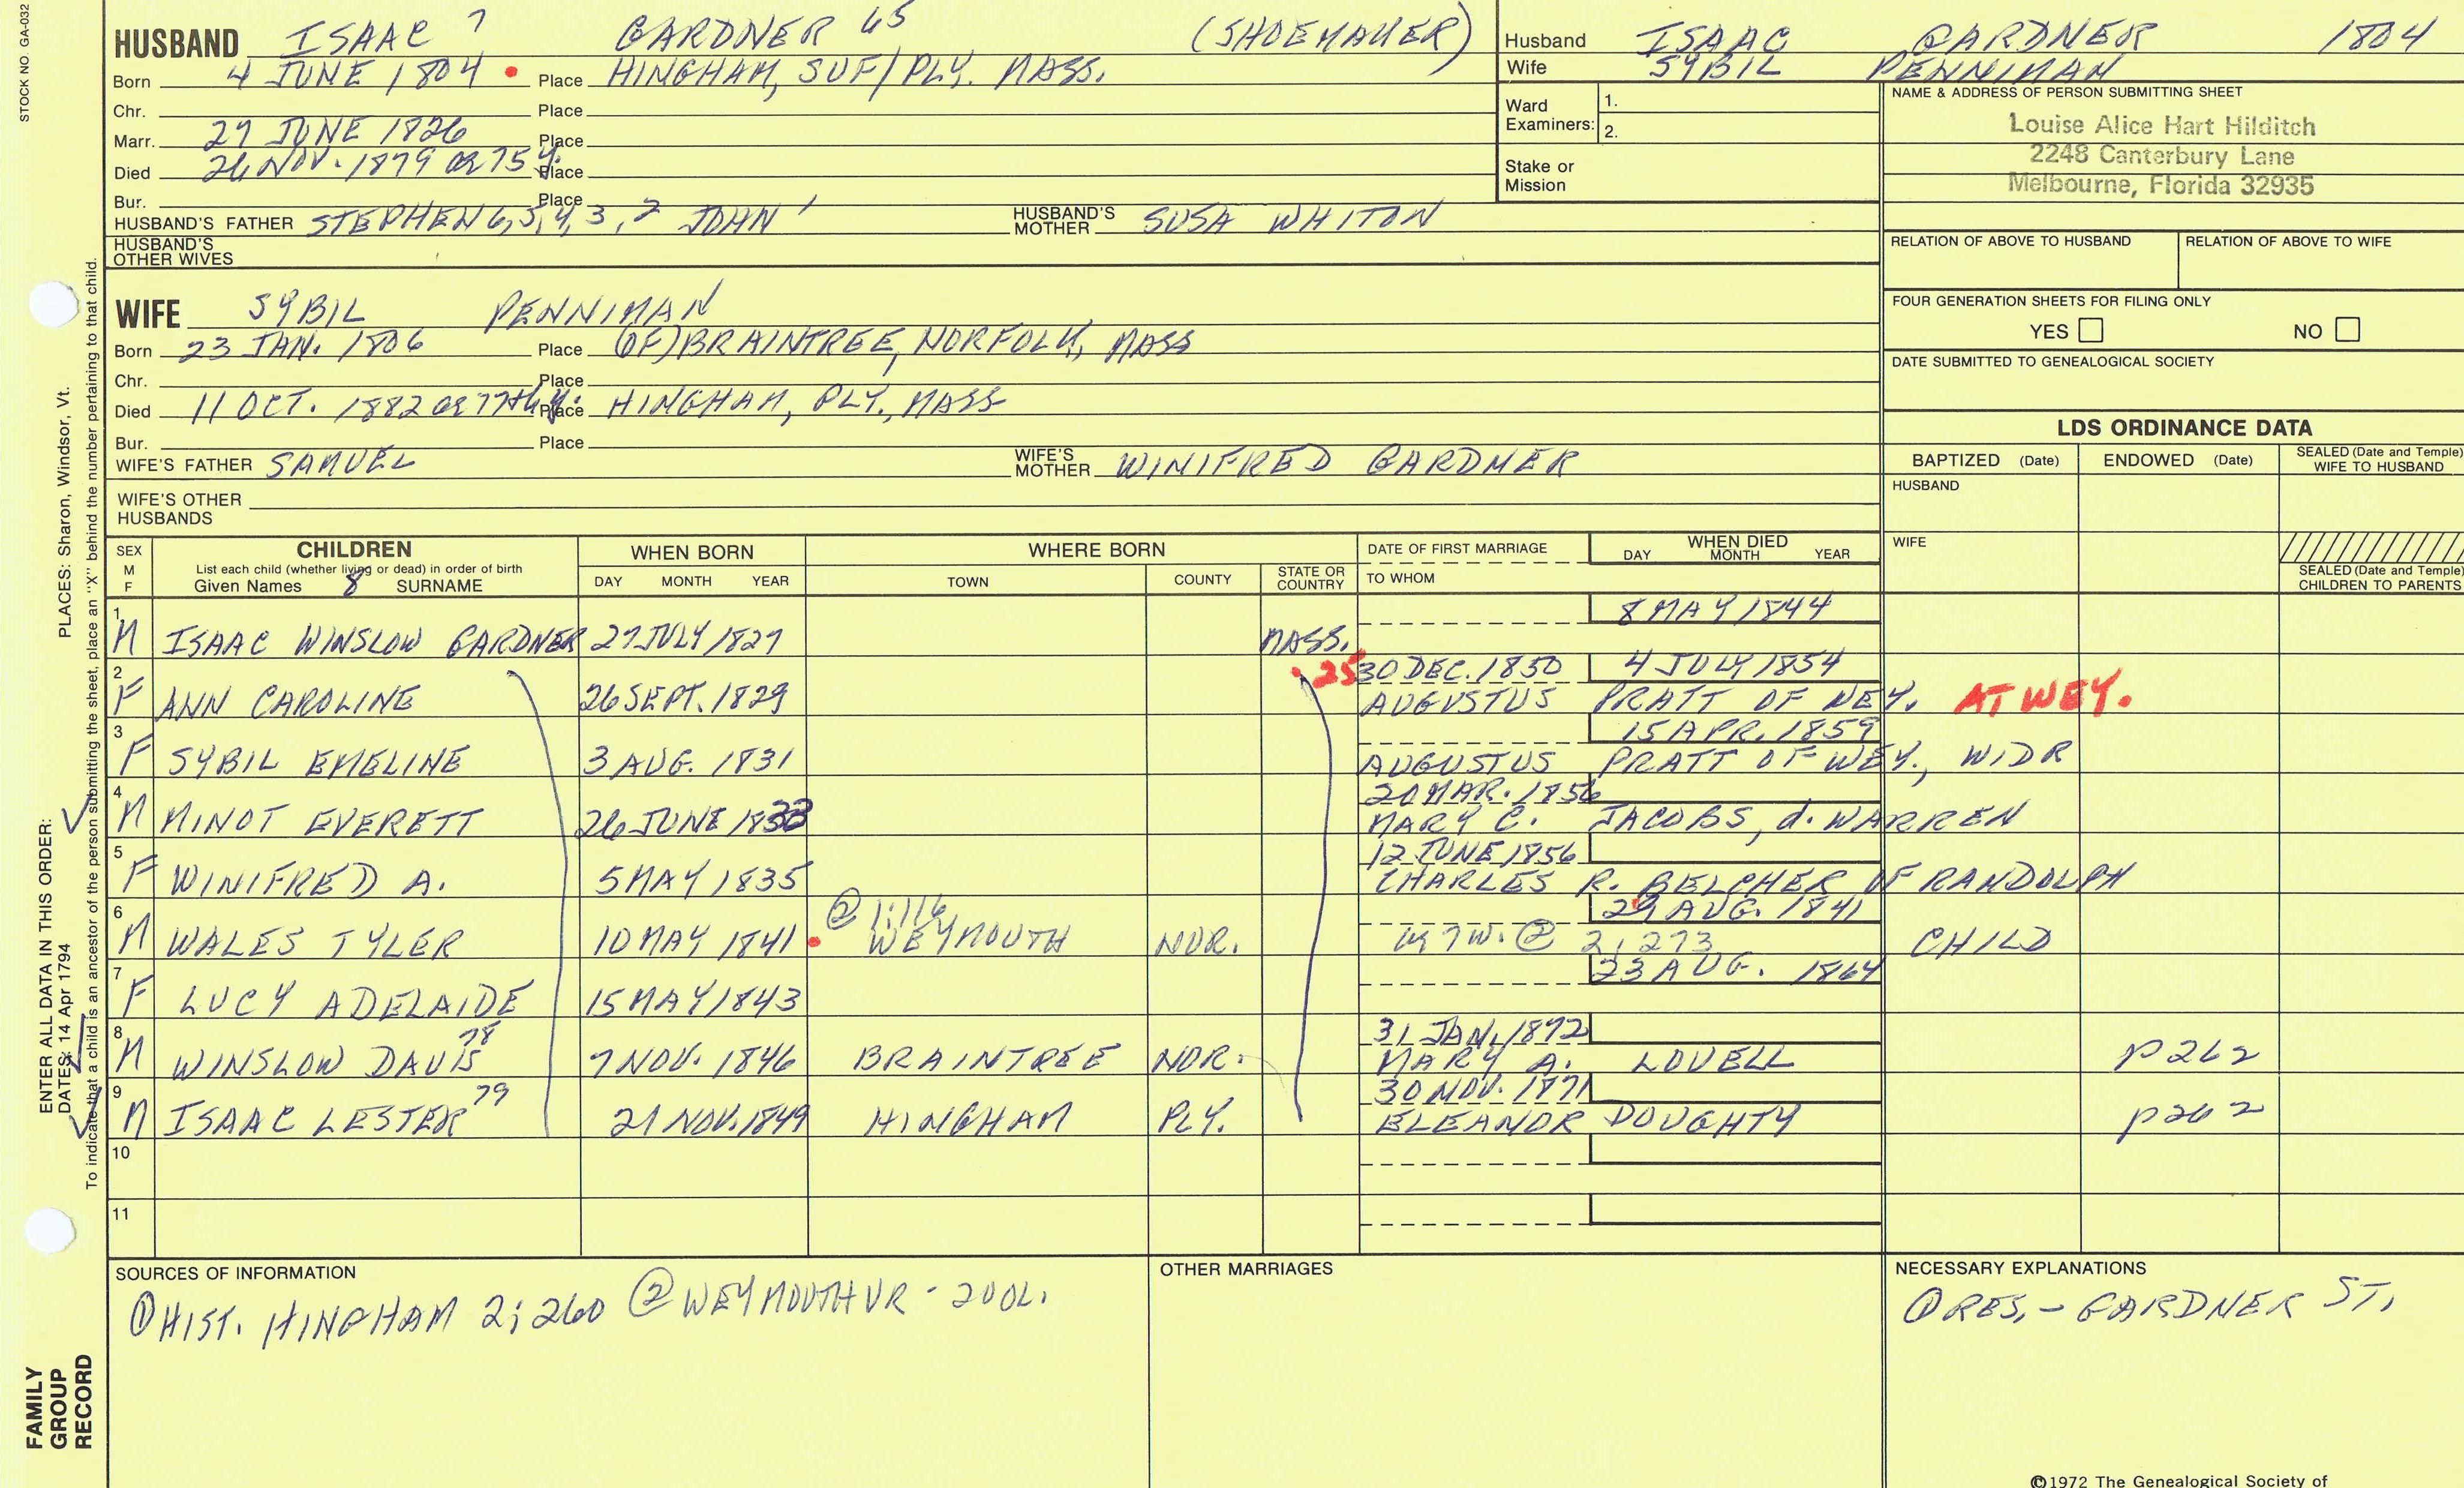 STOCK NO. GA-032
HUSBAND ISAAC 7 GARDNER 65 (SHOEMAKER)
Born 4 JUNE 1804 • Place HINGHAM, SUF/PLY. MASS.
Chr. Place
Marr. 27 JUNE 1826 Place
Died 26 NOV. 1879 æ 75 y. Place
Bur. Place
HUSBAND'S FATHER STEPHEN 6,5,4,3,2 JOHN 1 HUSBAND'S MOTHER SUSA WHITON
HUSBAND'S OTHER WIVES
Husband ISAAC GARDNER 1804
Wife SYBIL PENNIMAN
Ward Examiners: 1.
2.
Stake or Mission
NAME & ADDRESS OF PERSON SUBMITTING SHEET
Louise Alice Hart Hilditch
2248 Canterbury Lane
Melbourne, Florida 32935
RELATION OF ABOVE TO HUSBAND RELATION OF ABOVE TO WIFE
FOUR GENERATION SHEETS FOR FILING ONLY
YES NO
DATE SUBMITTED TO GENEALOGICAL SOCIETY
WIFE SYBIL PENNIMAN
Born 23 JAN. 1806 Place (OF) BRAINTREE, NORFOLK, MASS
Chr. Place
Died 11 OCT. 1882 æ 77th y. Place HINGHAM, PLY., MASS
Bur. Place
WIFE'S FATHER SAMUEL WIFE'S MOTHER WINIFRED GARDNER
WIFE'S OTHER HUSBANDS
LDS ORDINANCE DATA
BAPTIZED (Date) ENDOWED (Date) SEALED (Date and Temple) WIFE TO HUSBAND
HUSBAND
WIFE
SEALED (Date and Temple) CHILDREN TO PARENTS
SEX M F
CHILDREN
List each child (whether living or dead) in order of birth
Given Names 8 SURNAME
WHEN BORN
DAY MONTH YEAR
WHERE BORN
TOWN COUNTY STATE OR COUNTRY
DATE OF FIRST MARRIAGE
TO WHOM
WHEN DIED
DAY MONTH YEAR
1 8 MAY 1844
M ISAAC WINSLOW GARDNER 27 JULY 1827 MASS.
2 • 25 30 DEC. 1850 4 JULY 1854
F ANN CAROLINE 26 SEPT. 1829 AUGUSTUS PRATT OF WEY. AT WEY.
3 15 APR. 1859
F SYBIL EMELINE 3 AUG. 1831 AUGUSTUS PRATT OF WEY., WIDR
4 20 MAR. 1856
M MINOT EVERETT 26 JUNE 1833 MARY C. JACOBS, d. WARREN
5 12 JUNE 1856
F WINIFRED A. 5 MAY 1835 CHARLES R. BELCHER OF RANDOLPH
6 ② 1:116 29 AUG. 1841
M WALES TYLER 10 MAY 1841 • WEYMOUTH NOR. ② 2:273 CHILD
7 23 AUG. 1864
F LUCY ADELAIDE 15 MAY 1843
8 31 JAN. 1872
M WINSLOW DAVIS 78 7 NOV. 1846 BRAINTREE NOR. MARY A. LOVELL p262
9 30 NOV. 1871
M ISAAC LESTER 79 21 NOV. 1849 HINGHAM PLY. ELEANOR DOUGHTY p262
10
11
PLACES: Sharon, Windsor, Vt.
ENTER ALL DATA IN THIS ORDER:
DATES: 14 Apr 1794
To indicate that a child is an ancestor of the person submitting the sheet, place an "X" behind the number pertaining to that child.
FAMILY GROUP RECORD
SOURCES OF INFORMATION
① HIST. HINGHAM 2; 260 ② WEYMOUTH VR - 2 VOL.
OTHER MARRIAGES
NECESSARY EXPLANATIONS
① RES. - GARDNER ST.
©1972 The Genealogical Society of